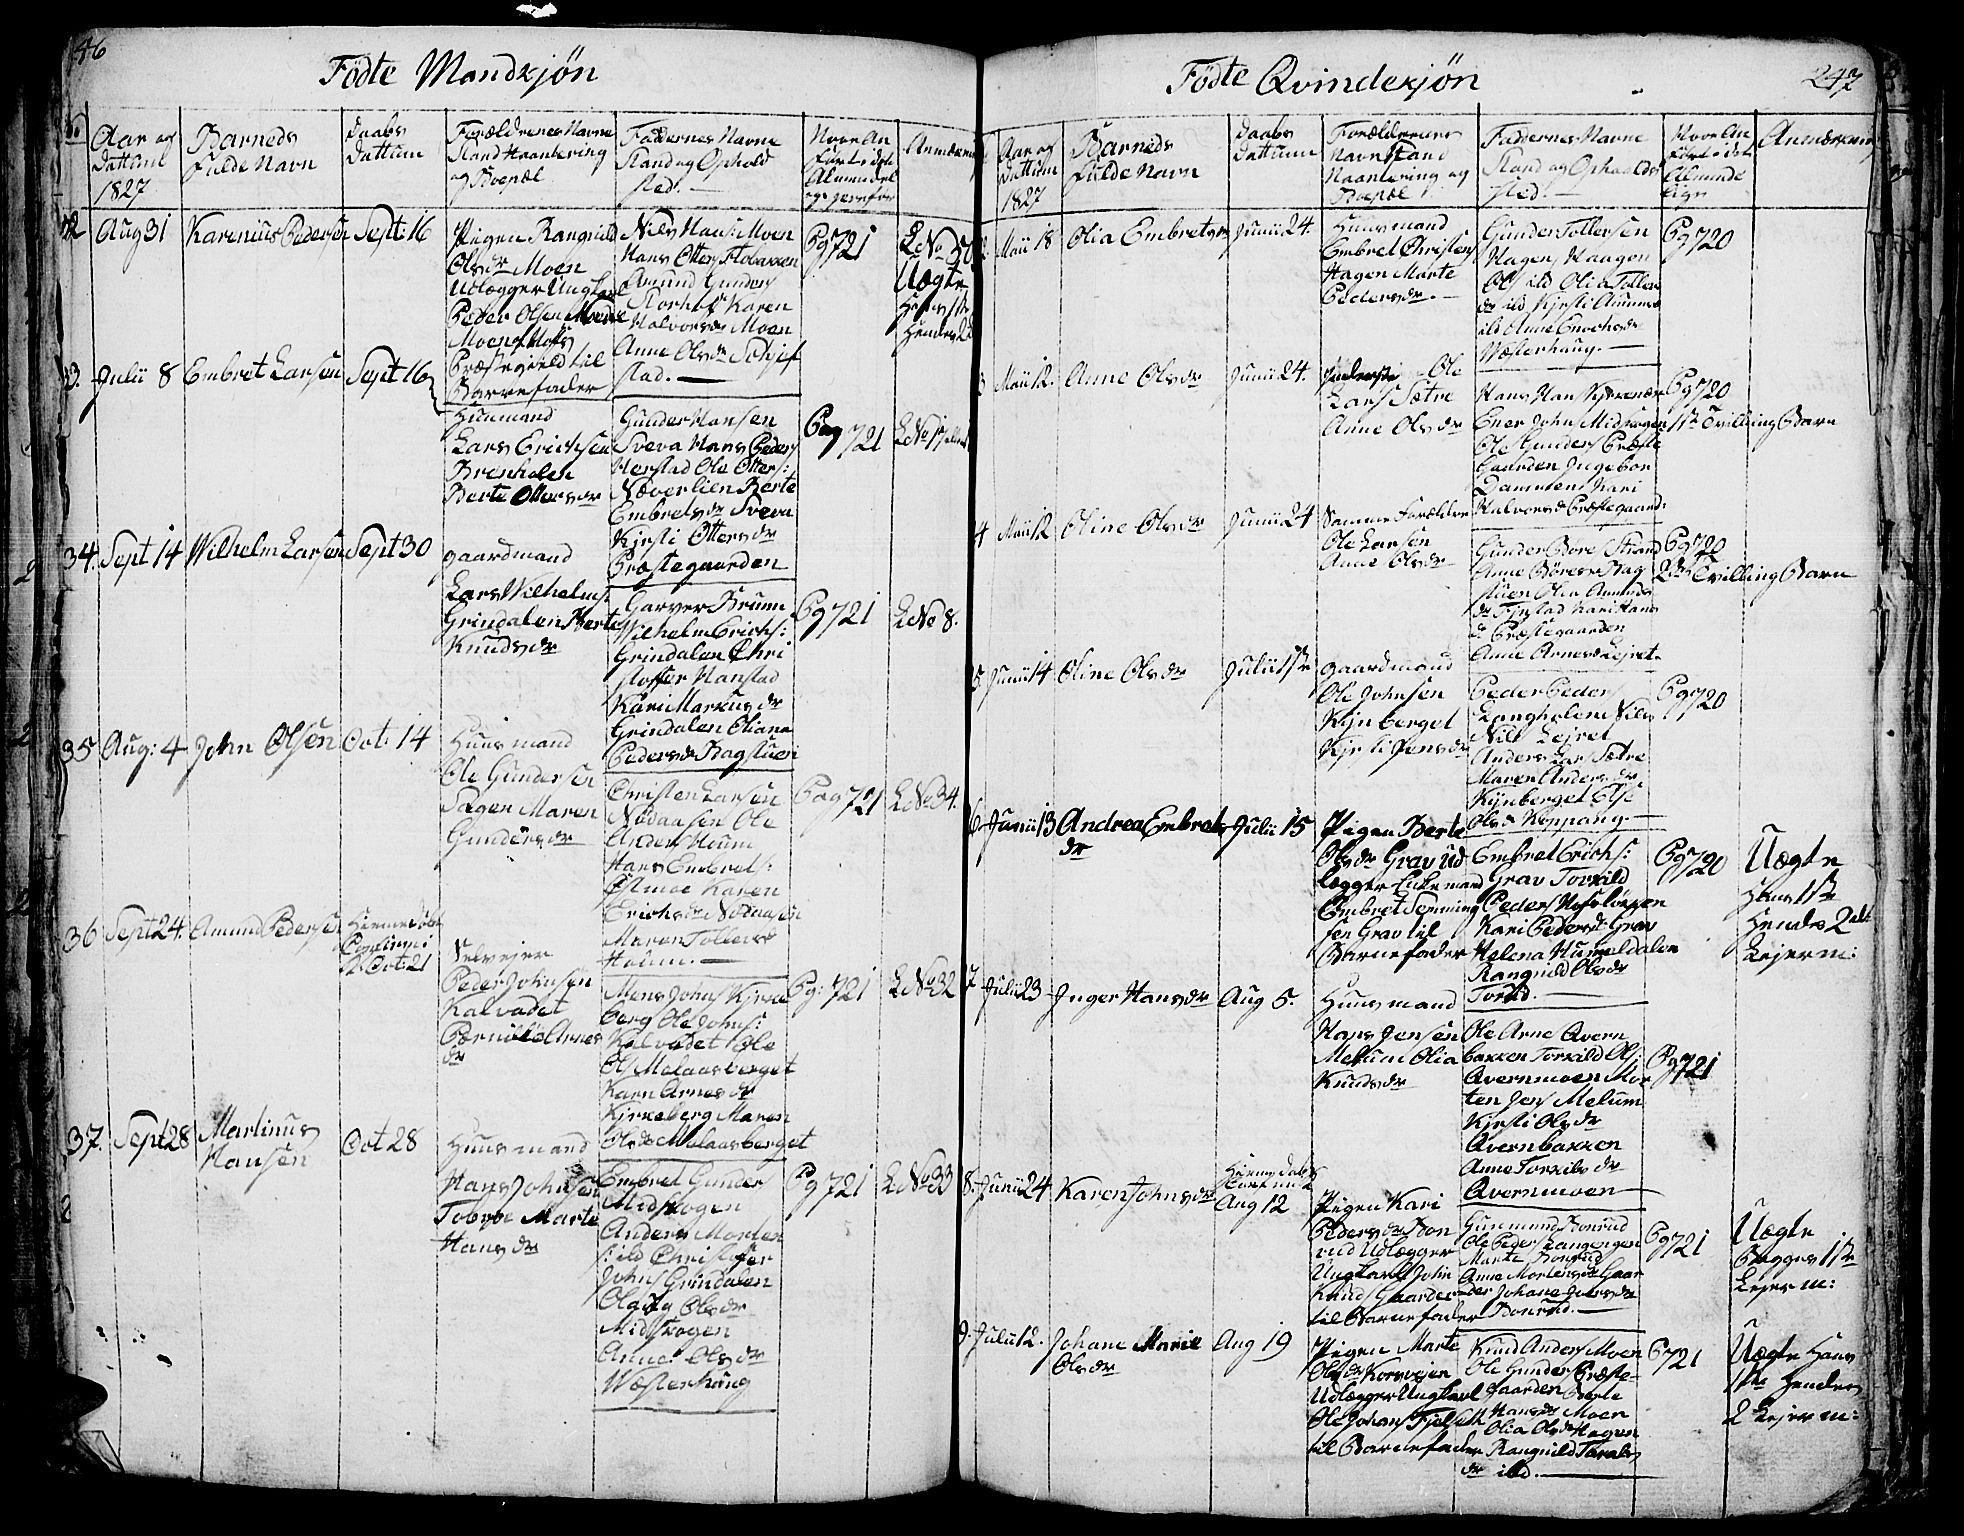 46
Födte Mandkjön
Aar og
Dattum
1827
Barneds
fulde Navn
Daabs
Dattum
Forældrenes Navne
Stand Haantering
og Boepæl
Faddernes Navne
Stand og Ophold
sted.
Hvor An
fört i dete
Almindel
Anmærkn
Aug 31
Karenius Pedersen
Sept: 16
Pigen Rangnild
Olsdr Moen
Udlægger Ungkarl
Peder Olsen Moen
Præstegield til
Barnefader
Nils Hans: Moen
Hans Otters Flobakken
Amund Gunders
Storhof Karen
Halvorsdr Moen
Anne Olsdr Schjef
stad.
Pg 721
L No
Uægte
Hans 1ste
Hendes 2d
33.
Julii 8
Embret Larsen
Sept 16
Huusmand
Lars Erichsen
Brenholen
Berte Ottersdr
Gunder Hansen
Sveva Hans Peders
Herstad Ole Otters:
Næverlien Berte
Embretsdr Sveva
Kirsti Ottersdr
Præstegaarden
Pag 721
L No 17
34.
Sept 14
Wilhelm Larsen
Sept 30
gaardmand
Lars Wilhelms:
Grindalen Berte
Knudsdr
Garver Brunn
Wilhelm Erichs:
Grindalen Chri
stoffer Hanstad
Kari Markusdr
Grindalen Oliana
Pedersdr Bagstuen
Pg 721
L No 8.
35
Aug: 4
John Olsen
Oct: 14
Huusmand
Ole Gundersen
Sagen Maren
Gundersdr
Christen Larsen
Nödaasen Ole
Anders Houm
Hans Embrets:
Östmoe Karen
Erichsdr Nödaasen
Maren Tollevs
Houm.
Pag 721
L No 34.
36
Sept 24.
Amund Pedersen
Hiemmedöbt
Confirmi
Oct: 21
Selvejer
Peder Johnsen
Kalvadet
Pernille Arnes
dr
Mons Johns Kjrke
berg Ole Johns:
Kalvadet Ole
Ols Melaasberget
Karn Arnesdr
Kjrkeberg Maren
Olsdr Melaasberget
Pg: 721
L No 32
37.
Sept 28
Martinus
Hansen
Oct 28
Huusmand
Hans Johnsen
Marte
Hansdr
Embret Gunders
Midskogen
Anders Morten
s: ild Christofer
Johns Grindalen
Olsdr
Midskogen
Anne Olsdr
Wæsterhaug
Pg 721
L No 33
247
Födte Qvindekjön
Aar og
Dattum
1827
Barneds
fulde Navn
Daabs
Dattum
Forældrenes
Navn Stand
Haantering og
Boepæl
Faddernes Navne
Stand og Ophold
sted.
Hvor An
fört i det
Alminde
lige
Anmærkning
Maii 18
Olia Embretsdr
Junii 24.
Huusmand
Embret Christens
Hagen Marte
Pedersdr.
Gunder Tollersen
Hagen Haagen
Ols ild Olia Tollers
dr ild Kjrsti Amunds
ild Anne Enochsdr
Wæsterhaug.
Pg 720
Maii 12.
Anne Olsdr
Junii 24.
Ole
Lars Sætre
Anne Olsdr
Hans Hans Kjernæs
Ener John Midskogen
Ole Gunders Præste
Gaarden Ingebor
Dammen Kari
Halvorsdr Præstegaard:
Pg 720
1ste Tvilling Barn
4
Maii 12
Oline Olsdr
Junii 24
Samme Forældre
Ole Larsen
Anne Olsdr
Gunder Böre Strand
Anne Böresdr Bag
stuen Olia Amunds
dr Fjrstad Kari Hans
dr Præstegaarden
Anne Arnesdr Lejret
Pg 720
2den Tvilling Barn
5
Junii 14
Oline Olsdr
Julii 1ste
gaardmand
Ole Johnsen
Kynberget
Kjrsti Jensdr
Peder Peders
Langholen Nils
Nils Lejret
Anders Lars Sætre
Maren Andersdr
Kynberget Else
Olsdr Koppang.
Pg 720
6.
Junii 13
Andrea Embrets
dr
Julii 15
Pigen Berte
Olsdr Grav ud
lægger Enkemand
Embret Semming
sen Grav til
Barnefader
Embret Erichs:
Grav Torkild
Peders
Kari Pedersdr Grav
Helena Hummeldalen
Rangnild Olsdr
Torud.
Pg 720
Uægte
Hans 1ste
Hendes 2det
Lejerm:
7
Julii 23
Inger Hansdr
Aug 5.
Huusmand
Hans Jensen
Melum Olia
Knudsdr
Ole Arne Qvern
bakken Torkild Ols
Qvernmoen Mor
ten Jens Melum
Kjrsti Olsdr
Qvernbakken
Anne Torkilsdr
Qvernmoen
Pg 721
8.
Junii 24
Karen Johnsdr
Hiemedöbt
Aug 12
Pigen Kari
Pedersdr Bon
rud Udlægger
Ungkarl John
Knuds Gaarder
til Barnefader
Gunmund Bonrud
Ole Peders Langengen
Marte Bonrud
Anne Mortensdr Gaar
der Johane Johnsdr
Bonrud.
Pg 721
Uægte
Begges 1ste
Lejerm:
9.
Julii 12.
Johane Marie
Olsdr
Aug 19
Pigen Marte
Olsdr Korsvejen
Udlægger Ungkarl
Ole Johans Fjelseth
til Barnefader
Knud Anders Moen
Ole Gunders Præste
gaarden Berte
Hansdr Moen
Olia Olsdr Hagen
Rangnild Torals
dr ild.
721
Uægte Hans
1ste Hendes
2 Lejerm: